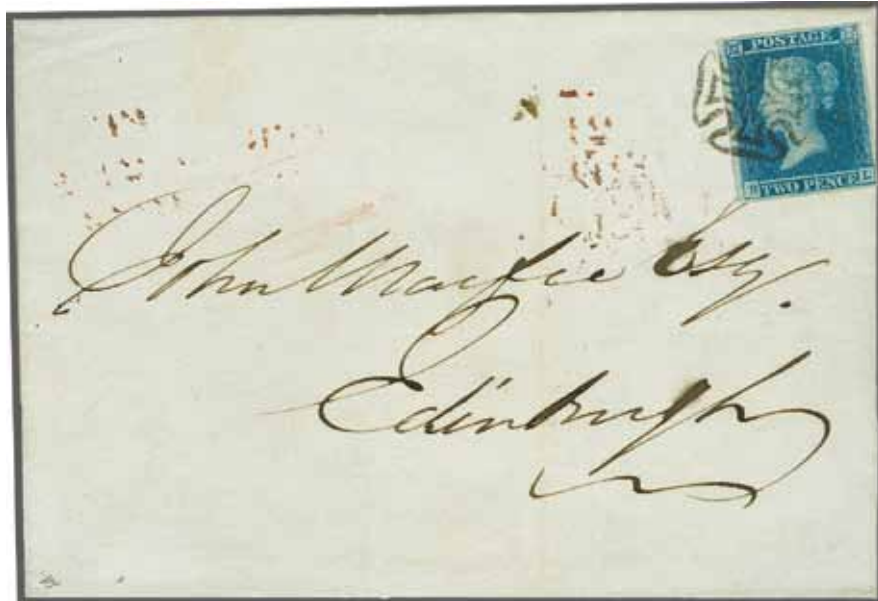 POSTAGE
TWO PENCE L
John Macfie Esq.
Edinburgh